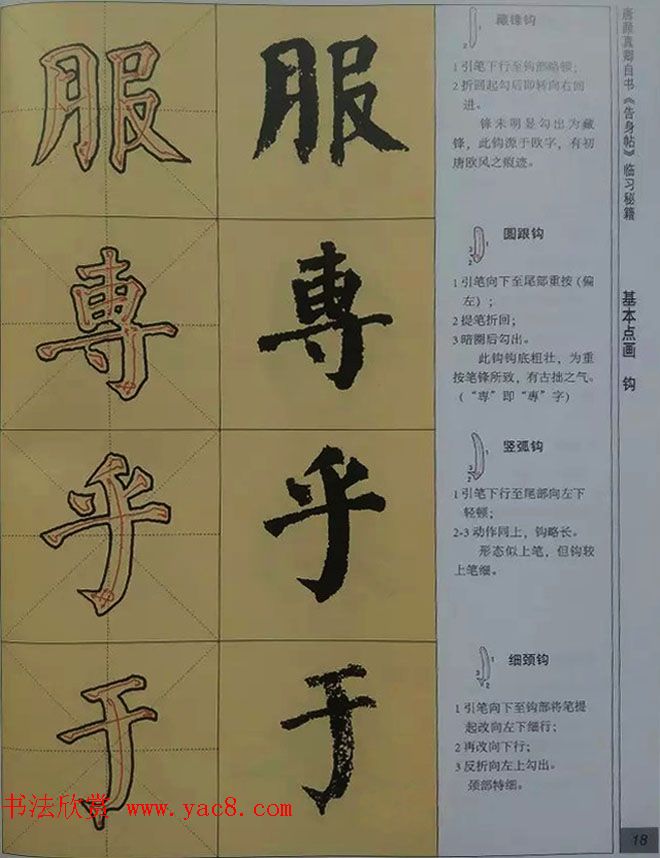 唐颜真卿自书《告身帖》临习秘籍
基本点画 钩
服 服
藏锋钩
1 引笔下行至钩部略顿;
2 折圆起勾后即转向右回
进。
锋未明显勾出为藏
锋,此钩源于欧字,有初
唐欧风之痕迹。
專 專
圆跟钩
1 引笔向下至尾部重按(偏
左);
2 提笔折回;
3 暗圈后勾出。
此钩钩底粗壮,为重
按笔锋所致,有古拙之气。
(“専”即“專”字)
乎 乎
竖弧钩
1 引笔下行至尾部向左下
轻顿;
2-3 动作同上,钩略长。
形态似上笔,但钩较
上笔细。
于 于
细颈钩
1 引笔向下至钩部将笔提
起改向左下细行;
2 再改向下行;
3 反折向左上勾出。
颈部特细。
书法欣赏 www.yac8.com
18